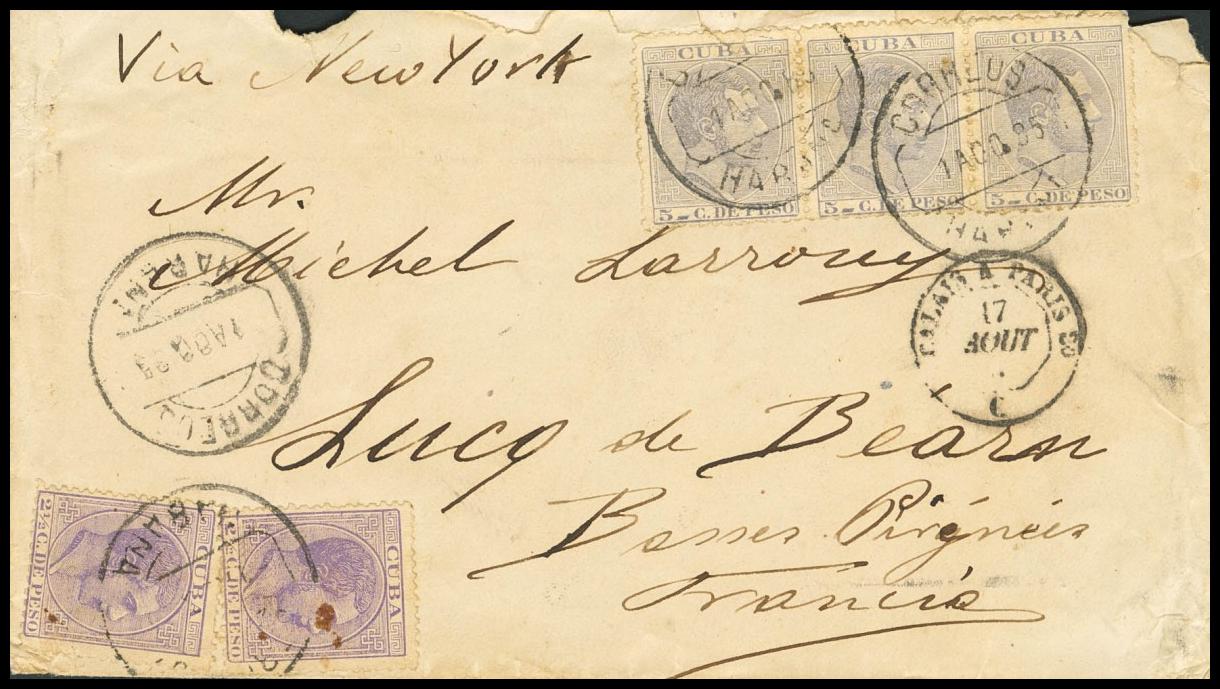 Via New York
CUBA CUBA CUBA
5 C. DE PESO 5 C. DE PESO 5 C. DE PESO
CORREOS
1 AGO. 85
Mr.
Michel Larrouy
HABANA
1 AGO. 85
CORREOS
CALAIS A PARIS
17
AOUT
Lucq de Bearn
Basses Pirénéis
Francia
2½ C. DE PESO CUBA
2½ C. DE PESO CUBA
HABANA